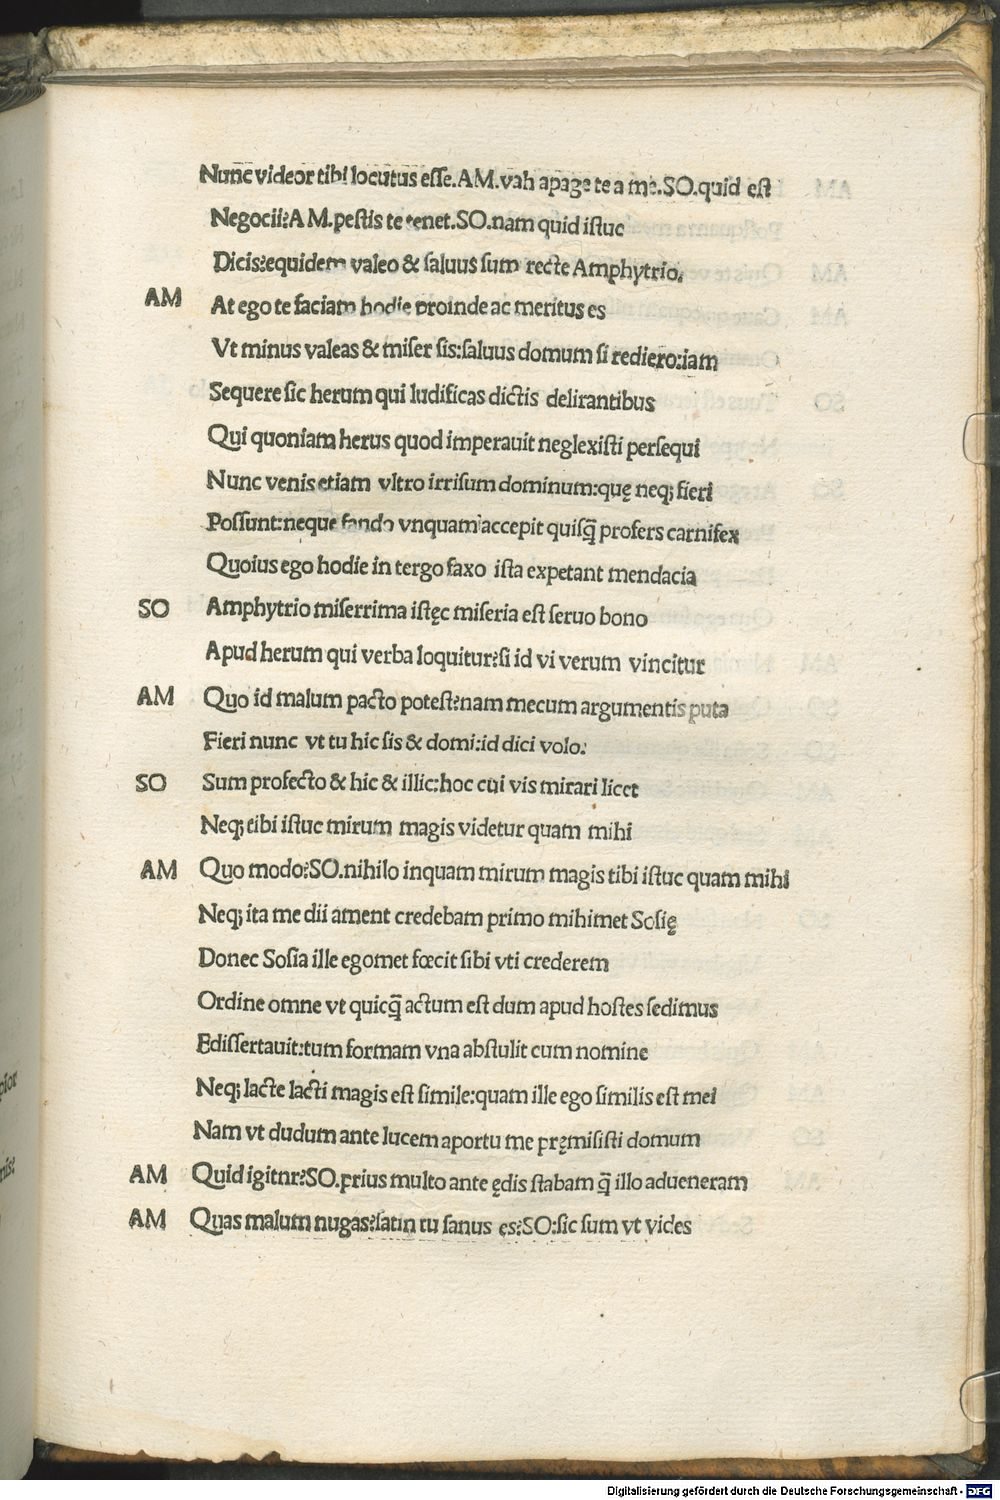 Nunc videor tibi locutus esse.AM.vah apage te a me.SO.quid est
Negocii?AM.pestis te tenet.SO.nam quid istuc
Dicis?equidem valeo & saluus sum recte Amphytrio.
AM At ego te faciam hodie proinde ac meritus es
Vt minus valeas & miser sis:saluus domum si rediero:iam
Sequere sic herum qui ludificas dictis delirantibus
Qui quoniam herus quod imperauit neglexisti persequi
Nunc venis etiam vltro irrisum dominum:quę neq; fieri
Possunt:neque fando vnquam accepit quisq̄ profers carnifex
Quoius ego hodie in tergo faxo ista expetant mendacia
SO Amphytrio miserrima istęc miseria est seruo bono
Apud herum qui verba loquitur?si id vi verum vincitur
AM Quo id malum pacto potest?nam mecum argumentis puta
Fieri nunc vt tu hic sis & domi:id dici volo.
SO Sum profecto & hic & illic:hoc cui vis mirari licet
Neq; tibi istuc mirum magis videtur quam mihi
AM Quo modo?SO.nihilo inquam mirum magis tibi istuc quam mihi
Neq; ita me dii ament credebam primo mihimet Sosię
Donec Sosia ille egomet fœcit sibi vti crederem
Ordine omne vt quicq̄ actum est dum apud hostes sedimus
Edissertauit:tum formam vna abstulit cum nomine
Neq; lacte lacti magis est simile:quam ille ego similis est mei
Nam vt dudum ante lucem aportu me pręmisisti domum
AM Quid igitnr?SO.prius multo ante ędis stabam q̄ illo adueneram
AM Quas malum nugas?satin tu sanus es?SO:sic sum vt vides
Digitalisierung gefördert durch die Deutsche Forschungsgemeinschaft - DFG